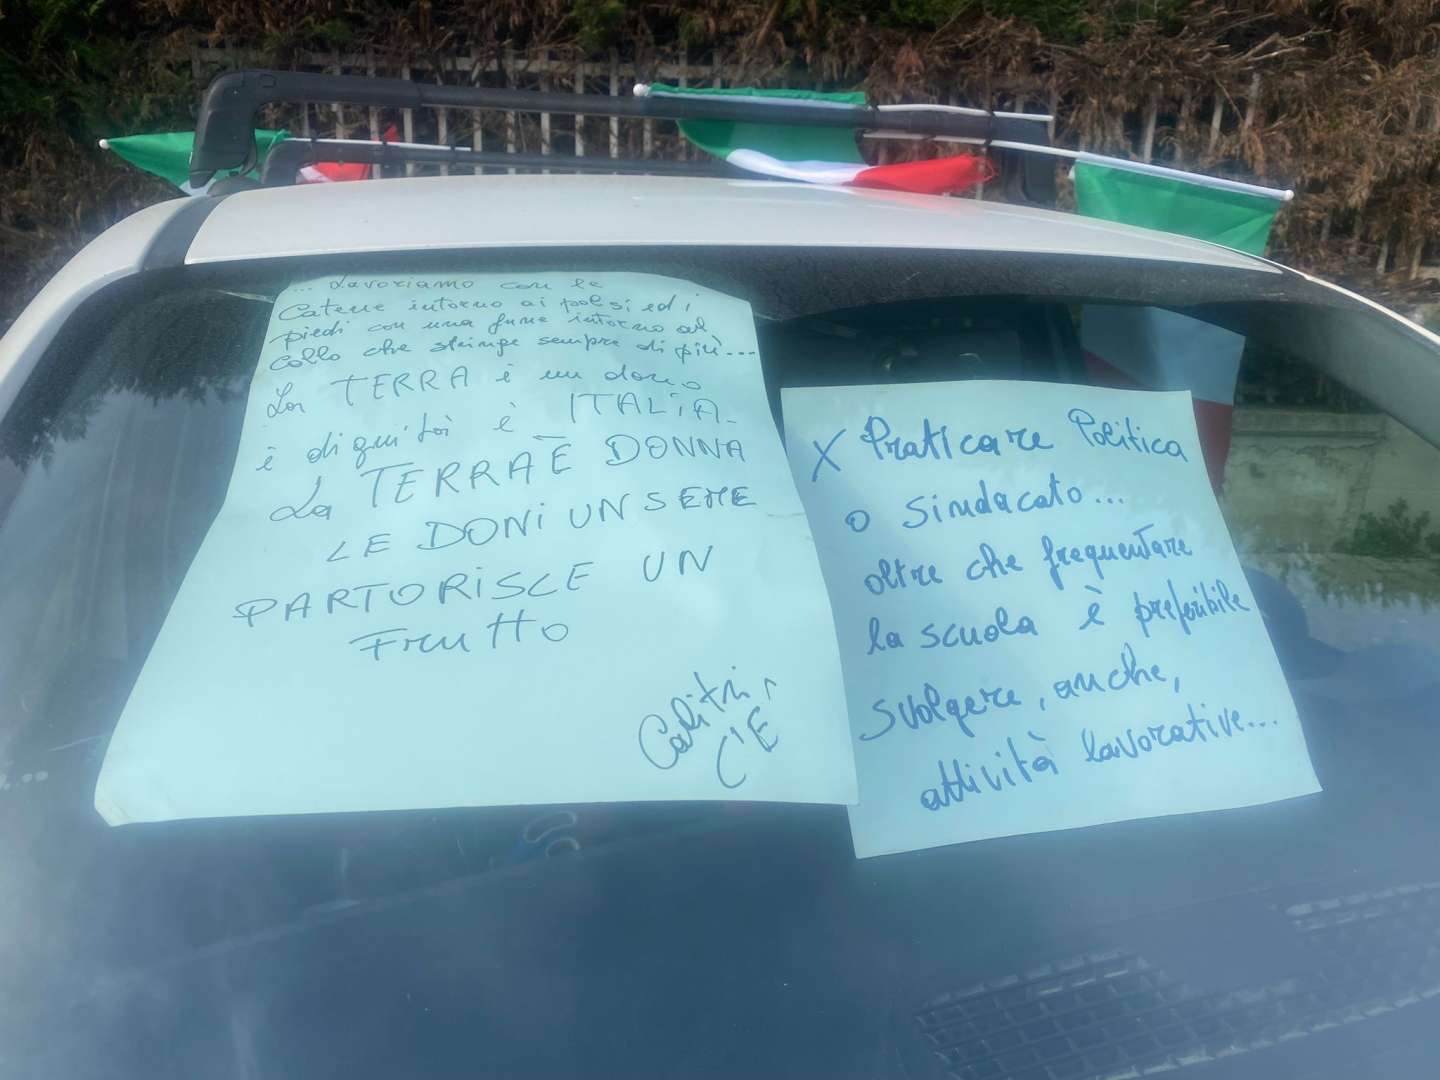 ... Lavoriamo con le
Catene intorno ai polsi ed i
piedi con una fune intorno al
collo che stringe sempre di più...
La TERRA è un dono
è dignità è ITALIA.
La TERRA È DONNA
LE DONI UN SEME
PARTORISCE UN
FRUTTO
Calitri
C'È
X Praticare Politica
o sindacato...
oltre che frequentare
la scuola è preferibile
svolgere, anche,
attività lavorative...